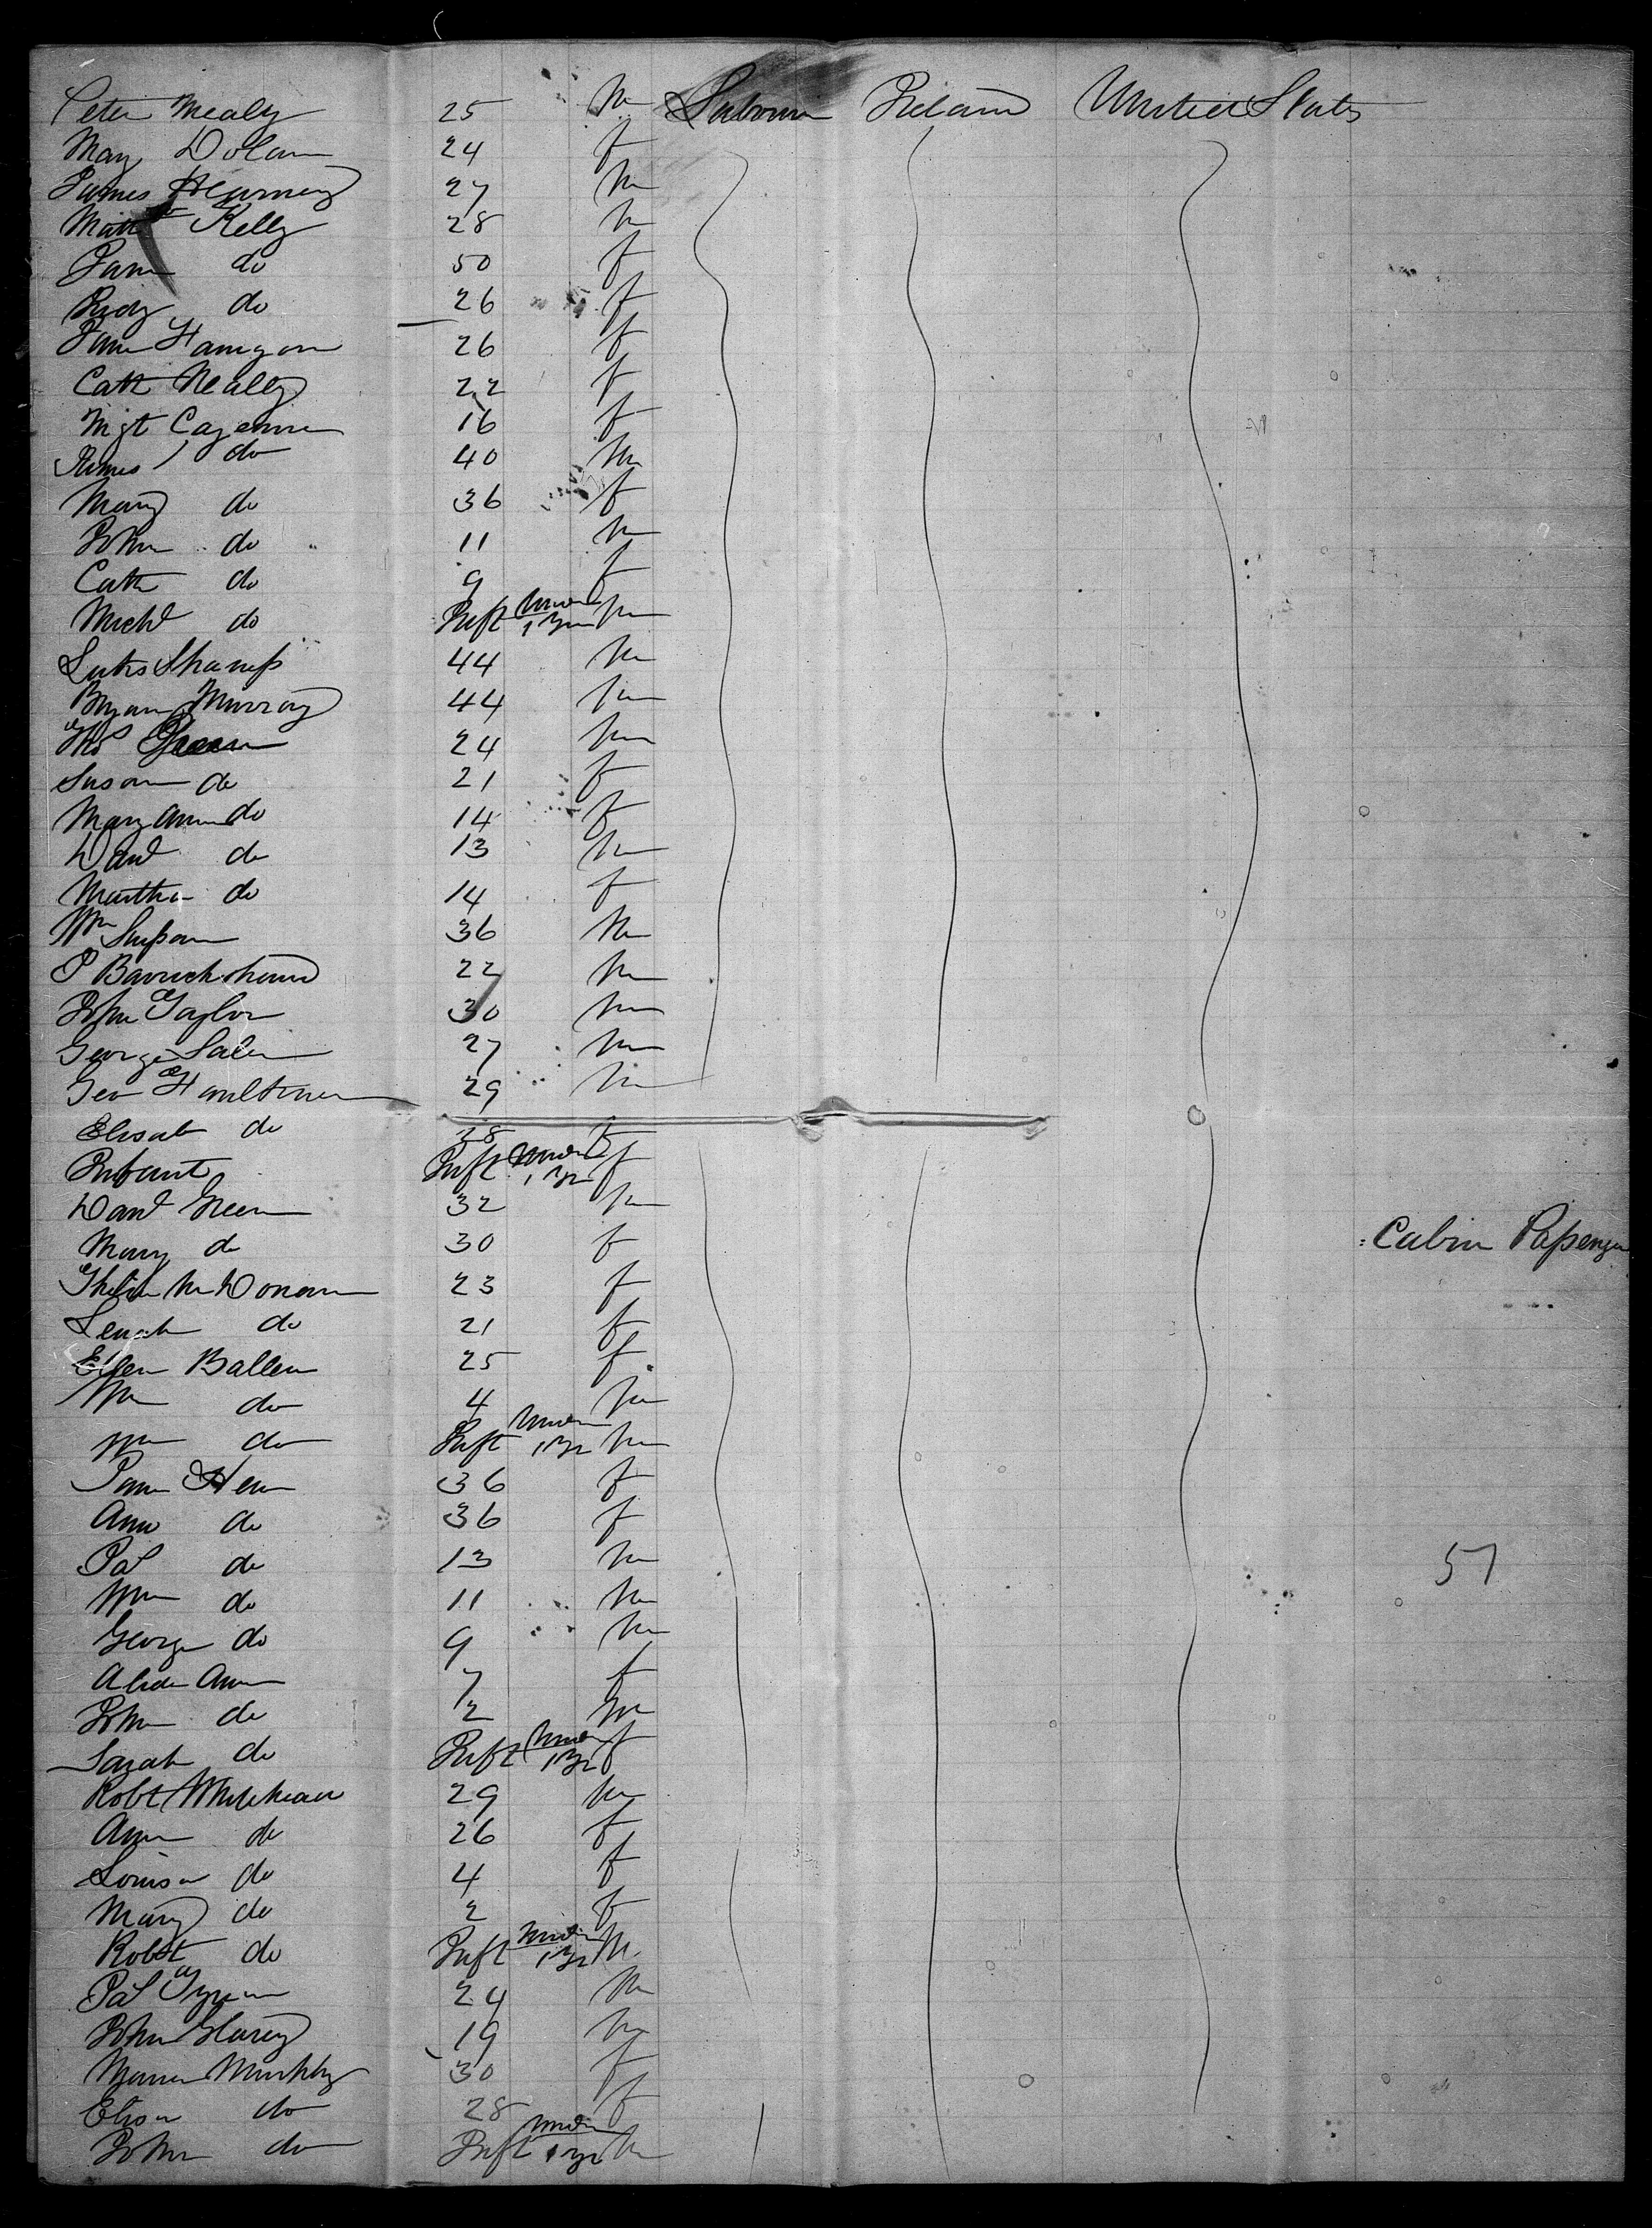 Peter Mealy 25 m Laborer Ireland United States
Mary Dolan 24 f
James Kearney 27 m
Matt Kelly 28 m
Jane do 50 f
Bidy do 26 f
Jane Hanigan 26 f
Cath Nealy 22 f
Mgt 16 f
James do 40 m
Mary do 36 f
John do 11 m
Cath do 9 f
Michl do Inft under 1 yr m
44 m
Bryan Murray 44 m
Thos Green 24 m
Susan do 21 f
Mary Ann do 14 f
Danl do 13 m
Martha do 14 f
Wm 36 m
P 22 m
John Taylor 30 m
George 27 m
Geo 29 m
Elisab do 28 f
Infant Inft under 1 yr f
Danl Green 32 m
Mary do 30 f Cabin Passenger
23 f
do 21 f
Ellen Ballen 25 f
Wm do 4 m
Wm do Inft under 1 yr m
36 f
Ann do 36 f
Pat do 13 m 57
Wm do 11 m
George do 9 m
Ann 7 f
John do 2 m
Sarah do Inft under 1 yr f
Robt Whitehead 29 m
Ann do 26 f
Louisa do 4 f
Mary do 2 f
Robt do Inft under 1 yr m
Pat 24 m
John 19 m
Murphy 30 f
Elisa do 28 f
John do Inft under 1 yr m